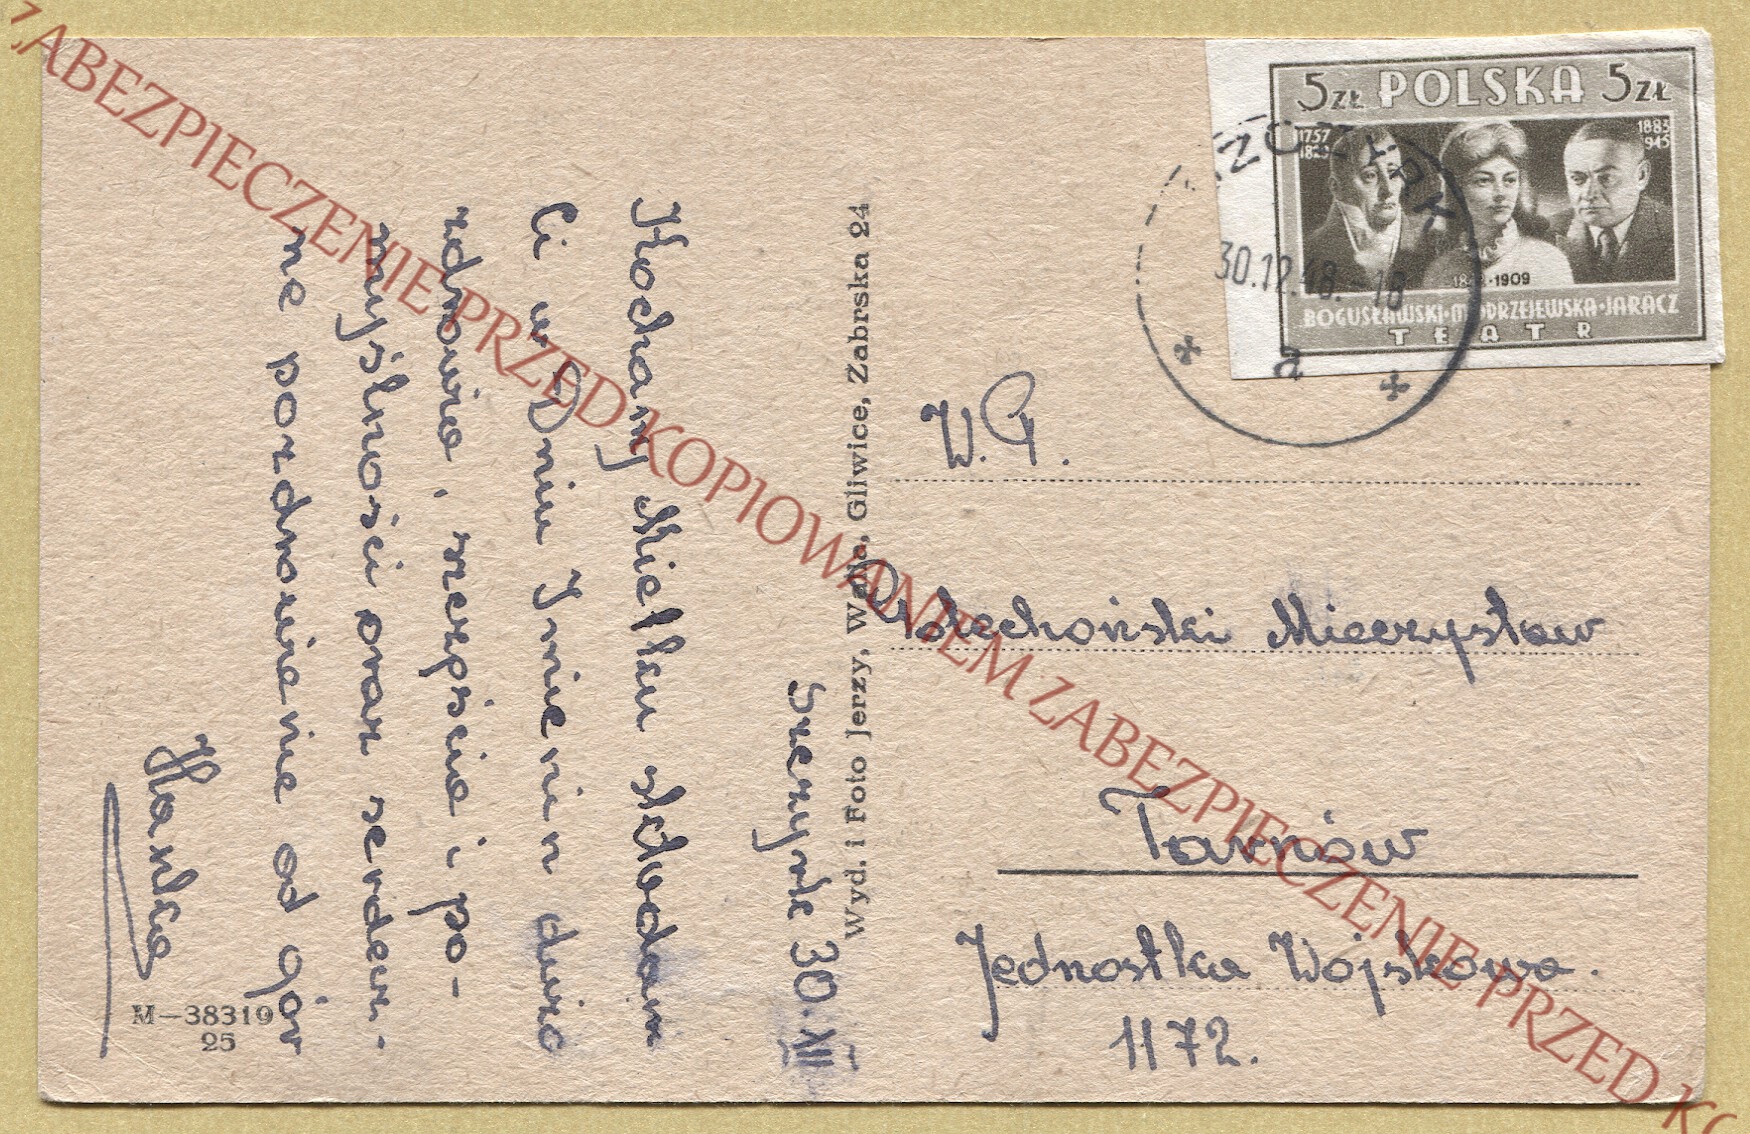 Szczyrk 30.XII.
Kochany Mietku składam
Ci w Dniu Imienin dużo
zdrowia, szczęścia i po-
myślności oraz serdecz-
ne pozdrowienie od Gór
Hanka
M—38319
25
Wyd. i Foto Jerzy, Gliwice, Zabrska 24
5 ZŁ POLSKA 5 ZŁ
1757
1883
1945
1909
BOGUSŁAWSKI·MODRZEJEWSKA·JARACZ
TEATR
30.12.48. 18
a
W.P.
Mieczysław
Tarnów
Jednostka Wojskowa.
1172.
ZABEZPIECZENIE PRZED KOPIOWANIEM ZABEZPIECZENIE PRZED KO